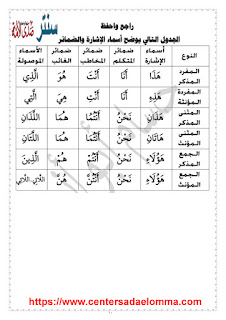 سنتر صدى الأمة
راجع واحفظ
الجدول التالي يوضح أسماء الإشارة والضمائر
النوع أسماء الإشارة ضمائر المتكلم ضمائر المخاطب ضمائر الغائب الأسماء الموصولة
المفرد المذكر هَذَا أَنَا أَنْتَ هُوَ الَّذِي
المفردة المؤنثة هَذِهِ أَنَا أَنْتِ هِيَ الَّتِي
المثنى المذكر هَذَانِ نَحْنُ أَنْتُمَا هُمَا اللَّذَانِ
المثنى المؤنث هَاتَانِ نَحْنُ أَنْتُمَا هُمَا اللَّتَانِ
الجمع المذكر هَؤُلَاءِ نَحْنُ أَنْتُمْ هُمْ الَّذِينَ
الجمع المؤنثة هَؤُلَاءِ نَحْنُ أَنْتُنَّ هُنَّ اللَّاتِي-اللَّائِي
https://www.centersadaelomma.com